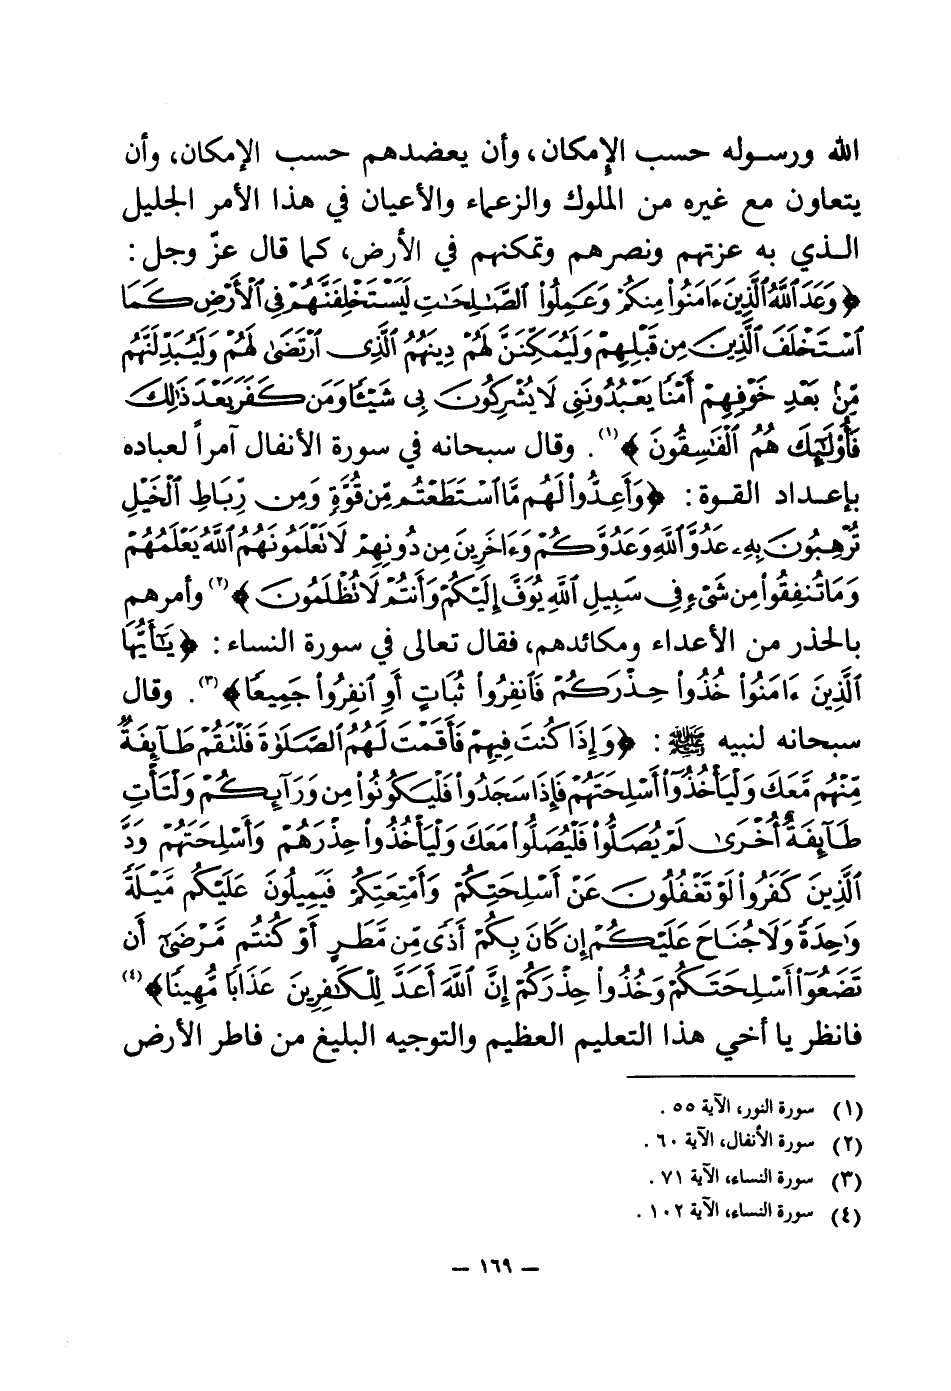 الله ورسوله حسب الإمكان، وأن يعضدهم حسب الإمكان، وأن
يتعاون مع غيره من الملوك والزعماء والأعيان في هذا الأمر الجليل
الذي به عزتهم ونصرهم وتمكنهم في الأرض، كما قال عزّ وجل :
﴿وَعَدَ ٱللَّهُ ٱلَّذِينَ ءَامَنُوا۟ مِنكُمْ وَعَمِلُوا۟ ٱلصَّـٰلِحَـٰتِ لَيَسْتَخْلِفَنَّهُمْ فِى ٱلْأَرْضِ كَمَا
ٱسْتَخْلَفَ ٱلَّذِينَ مِن قَبْلِهِمْ وَلَيُمَكِّنَنَّ لَهُمْ دِينَهُمُ ٱلَّذِى ٱرْتَضَىٰ لَهُمْ وَلَيُبَدِّلَنَّهُم
مِّنۢ بَعْدِ خَوْفِهِمْ أَمْنًا يَعْبُدُونَنِى لَا يُشْرِكُونَ بِى شَيْـًٔا وَمَن كَفَرَ بَعْدَ ذَٰلِكَ
فَأُو۟لَـٰٓئِكَ هُمُ ٱلْفَـٰسِقُونَ﴾(١). وقال سبحانه في سورة الأنفال آمراً لعباده
بإعداد القوة : ﴿وَأَعِدُّوا۟ لَهُم مَّا ٱسْتَطَعْتُم مِّن قُوَّةٍ وَمِن رِّبَاطِ ٱلْخَيْلِ
تُرْهِبُونَ بِهِۦ عَدُوَّ ٱللَّهِ وَعَدُوَّكُمْ وَءَاخَرِينَ مِن دُونِهِمْ لَا تَعْلَمُونَهُمُ ٱللَّهُ يَعْلَمُهُمْ
وَمَا تُنفِقُوا۟ مِن شَىْءٍ فِى سَبِيلِ ٱللَّهِ يُوَفَّ إِلَيْكُمْ وَأَنتُمْ لَا تُظْلَمُونَ﴾(٢) وأمرهم
بالحذر من الأعداء ومكائدهم، فقال تعالى في سورة النساء : ﴿يَـٰٓأَيُّهَا
ٱلَّذِينَ ءَامَنُوا۟ خُذُوا۟ حِذْرَكُمْ فَٱنفِرُوا۟ ثُبَاتٍ أَوِ ٱنفِرُوا۟ جَمِيعًا﴾(٣). وقال
سبحانه لنبيه ﷺ : ﴿وَإِذَا كُنتَ فِيهِمْ فَأَقَمْتَ لَهُمُ ٱلصَّلَوٰةَ فَلْتَقُمْ طَآئِفَةٌ
مِّنْهُم مَّعَكَ وَلْيَأْخُذُوٓا۟ أَسْلِحَتَهُمْ فَإِذَا سَجَدُوا۟ فَلْيَكُونُوا۟ مِن وَرَآئِكُمْ وَلْتَأْتِ
طَآئِفَةٌ أُخْرَىٰ لَمْ يُصَلُّوا۟ فَلْيُصَلُّوا۟ مَعَكَ وَلْيَأْخُذُوا۟ حِذْرَهُمْ وَأَسْلِحَتَهُمْ وَدَّ
ٱلَّذِينَ كَفَرُوا۟ لَوْ تَغْفُلُونَ عَنْ أَسْلِحَتِكُمْ وَأَمْتِعَتِكُمْ فَيَمِيلُونَ عَلَيْكُم مَّيْلَةً
وَٰحِدَةً وَلَا جُنَاحَ عَلَيْكُمْ إِن كَانَ بِكُمْ أَذًى مِّن مَّطَرٍ أَوْ كُنتُم مَّرْضَىٰٓ أَن
تَضَعُوٓا۟ أَسْلِحَتَكُمْ وَخُذُوا۟ حِذْرَكُمْ إِنَّ ٱللَّهَ أَعَدَّ لِلْكَـٰفِرِينَ عَذَابًا مُّهِينًا﴾(٤)
فانظر يا أخي هذا التعليم العظيم والتوجيه البليغ من فاطر الأرض
(١) سورة النور، الآية ٥٥ .
(٢) سورة الأنفال، الآية ٦٠ .
(٣) سورة النساء، الآية ٧١ .
(٤) سورة النساء، الآية ١٠٢ .
– ١٦٩ –